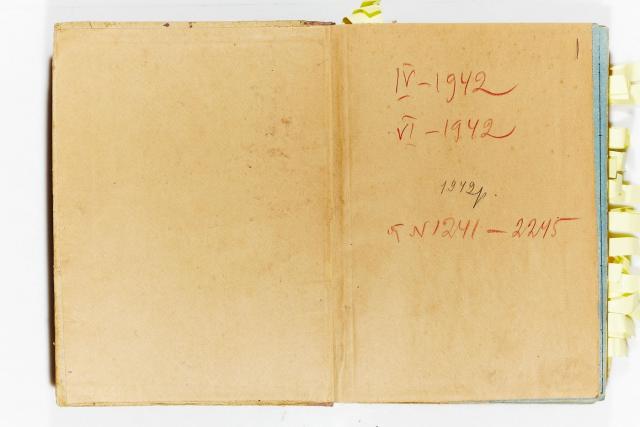 IV-1942
VI-1942
1942р.
с №1241 - 2245